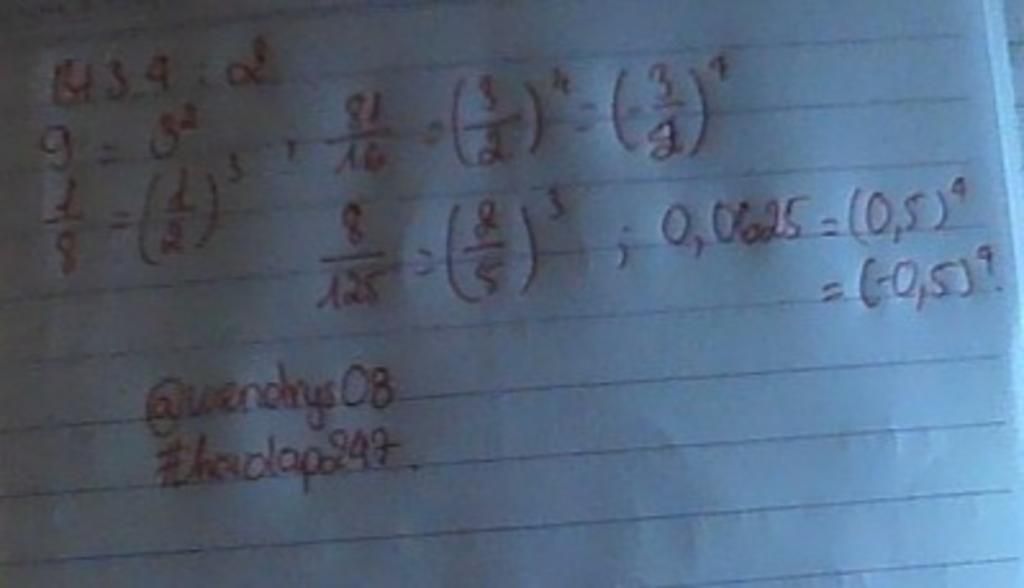 Bt 3.4 : 2
9 = 3² ; 81/16 = (3/2)⁴ = (-3/2)⁴
1/8 = (1/2)³ 8/125 = (2/5)³ ; 0,0625 = (0,5)⁴
= (-0,5)⁴.
@wendrys08
#hoidap247.